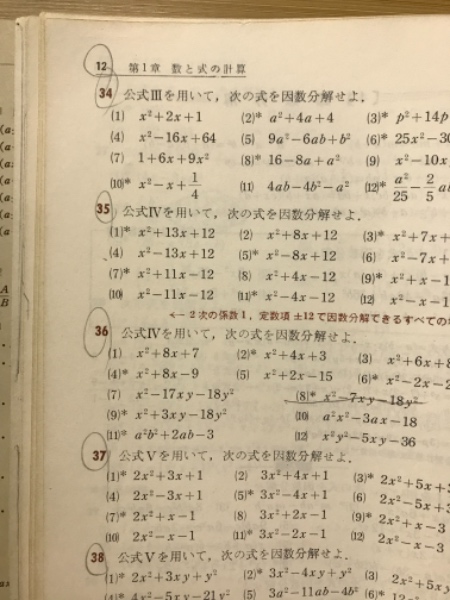 12 第1章 数と式の計算
34 公式Ⅲを用いて，次の式を因数分解せよ．
(1) x²+2x+1 (2)* a²+4a+4 (3)* p²+14p
(4) x²-16x+64 (5) 9a²-6ab+b² (6)* 25x²-30
(7) 1+6x+9x² (8)* 16-8a+a² (9) x²-10x
(10)* x²-x+1/4 (11) 4ab-4b²-a² (12)* a²/25-2/5ab
35 公式Ⅳを用いて，次の式を因数分解せよ．
(1)* x²+13x+12 (2) x²+8x+12 (3)* x²+7x+
(4) x²-13x+12 (5)* x²-8x+12 (6) x²-7x+
(7)* x²+11x-12 (8) x²+4x-12 (9)* x²+x-1
(10) x²-11x-12 (11)* x²-4x-12 (12) x²-x-1
← 2次の係数1，定数項 ±12で因数分解できるすべての
36 公式Ⅳを用いて，次の式を因数分解せよ．
(1) x²+8x+7 (2)* x²+4x+3 (3) x²+6x+8
(4)* x²+8x-9 (5) x²+2x-15 (6)* x²-2x-2
(7) x²-17xy-18y² (8)* x²-7xy-18y²
(9)* x²+3xy-18y² (10) a²x²-3ax-18
(11)* a²b²+2ab-3 (12) x²y²-5xy-36
37 公式Ⅴを用いて，次の式を因数分解せよ．
(1)* 2x²+3x+1 (2) 3x²+4x+1 (3)* 2x²+5x+
(4) 2x²-3x+1 (5)* 3x²-4x+1 (6) 2x²-5x+
(7)* 2x²+x-1 (8) 3x²+2x-1 (9)* 2x²+x-3
(10) 2x²-x-1 (11)* 3x²-2x-1 (12) 2x²-x-3
38 公式Ⅴを用いて，次の式を因数分解せよ．
(1)* 2x²+3xy+y² (2)* 3x²-4xy+y² (3) 2x²+5x
(4)* 4x²-5xy-21y² (5) 3a²-11ab-4b² (6)*